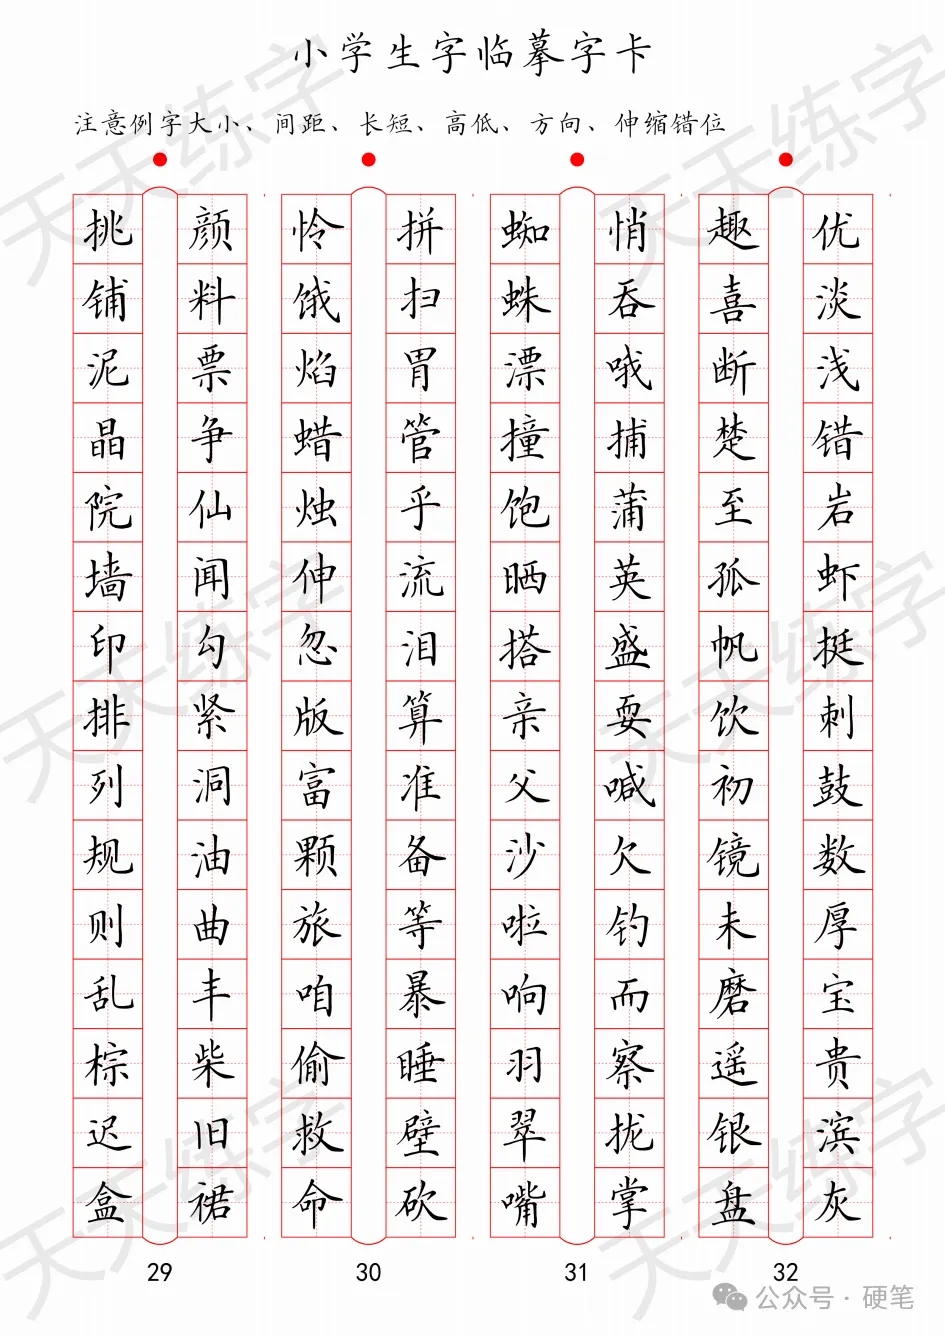 小学生字临摹字卡
注意例字大小、间距、长短、高低、方向、伸缩错位
挑 颜 怜 拼 蜘 悄 趣 优
铺 料 饿 扫 蛛 吞 喜 淡
泥 票 焰 胃 漂 哦 断 浅
晶 争 蜡 管 撞 捕 楚 错
院 仙 烛 乎 饱 蒲 至 岩
墙 闻 伸 流 晒 英 孤 虾
印 勾 忽 泪 搭 盛 帆 挺
排 紧 版 算 亲 耍 饮 刺
列 洞 富 准 父 喊 初 鼓
规 油 颗 备 沙 欠 镜 数
则 曲 旅 等 啦 钓 未 厚
乱 丰 咱 暴 响 而 磨 宝
棕 柴 偷 睡 羽 察 遥 贵
迟 旧 救 壁 翠 拢 银 滨
盒 裙 命 砍 嘴 掌 盘 灰
29 30 31 32
公众号 · 硬笔
天天练字
天天练字
天天练字
天天练字
天天练字
天天练字